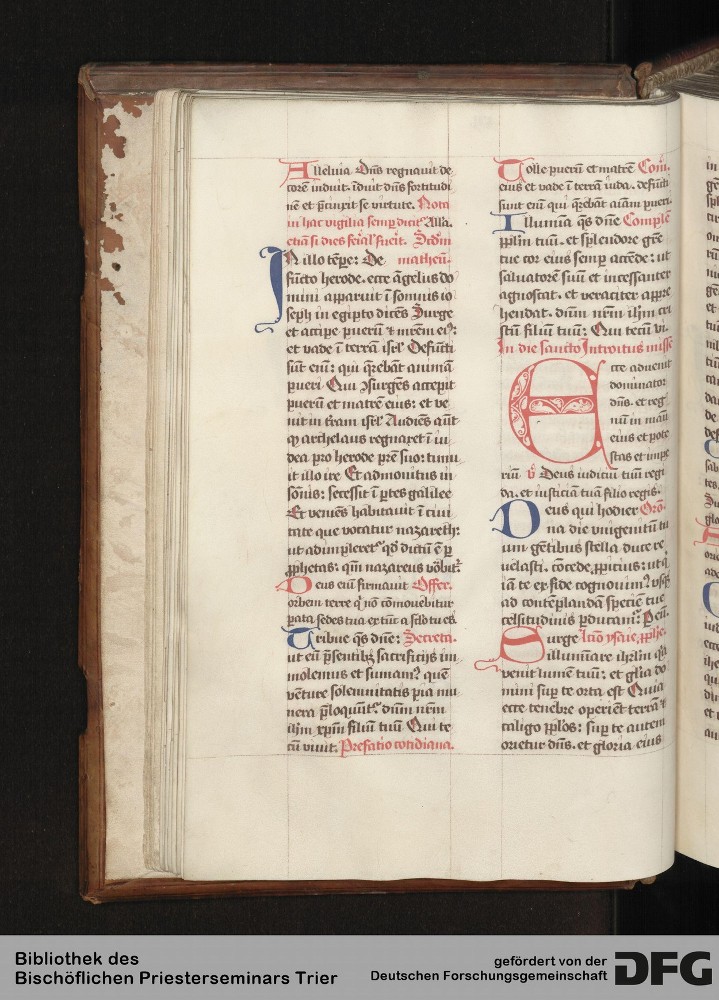 Alleluia Dn̄s regnauit de
corē induit. īduit dn̄s fortitudi
nē et p̄cinxit se virtute. Nota
in hac vigilia semꝑ dicit᷑ Alla.
etiā si dies feīal' fūit. Scd̄m
IN illo tēpꝛe: De matheū.
fūcto herode. ecce āgelus do
mini apparuit ī somnis io
seph in egipto dicēs Surge
et accipe pueꝝ et mrēm eiꝰ:
et vade ī terrā isrl' Defūcti
sūt eīm: qui q̄rebāt animā
pueri Qui ꝯsurgēs accepit
puerū et matrē eius: et ve
nit in t̄ram isrl' Audiēs aūt
ꝙ archelaus regnaret ī iu
dea pro herode pr̄e suo: timu
it illo ire Et admonitus in
sōnis: secessit ī ꝑtes galilee
Et veniēs habitauit ī ciui
tate que vocatur nazareth:
ut adimpleret᷑ qd̄ dictū ē ꝑ
ꝓphetas: qm̄ nazareus vōbit᷑
Deus eīm firmauit Offer.
orbem terre q̇ nō cōmouebitur
ꝑata sedes tua ex tūc a sclō tu es
Tribue qs̄ dn̄e: Secreta.
ut eū p̄sentibꝫ sacrificijs im
molemus et sumamꝰ quē
vēture solemnitatis pia mu
nera p̄loquūt᷑ dn̄m nr̄m
ihm̄ xp̄m filiū tuū Qui te
cū viuit. Prefatio cotidiana.
Tolle puerū et matrē Com̄.
eius et vade ī terrā iuda. defūcti
sunt eīm qui q̄rebāt aīam pueri.
Illumīa qs̄ dn̄e Complē
pplm̄ tuū. et splendore grē
tue cor eius semꝑ accēde: ut
saluatorē suū et incessanter
agnoscat. et veraciter appre
hendat. dn̄m nr̄m ihm̄ cri
stū filiū tuū: Qui tecū vi.
In die sancto Introitus misse
Ecce aduenit
dominator
dn̄s. et reg
nū in manu
eius et pote
stas et impe
riū v̊ Deus iudiciū tuū regi
da. et iusticiā tuā filio regis.
Deus qui hodier Oro.
na die vnigenitū tu
um gētibus stella duce re
uelasti. cōcede ꝓpicius: ut q̇
iā te ex fide cognouimꝰ vsqꝫ
ad contēplandā speciē tue
celsitudinis ꝑducamꝰ: Ꝑ eūd.
Surge Lcō ysaie ꝓphe.
illuminare ihrlm̄ q̇a
venit lumē tuū: et gl̄ia do
mini suꝑ te orta est Quia
ecce tenebre operiēt terrā et
caligo pplos: suꝑ te autem
orietur dn̄s. et gloria eius
Bibliothek des
Bischöflichen Priesterseminars Trier
gefördert von der
Deutschen Forschungsgemeinschaft
DFG